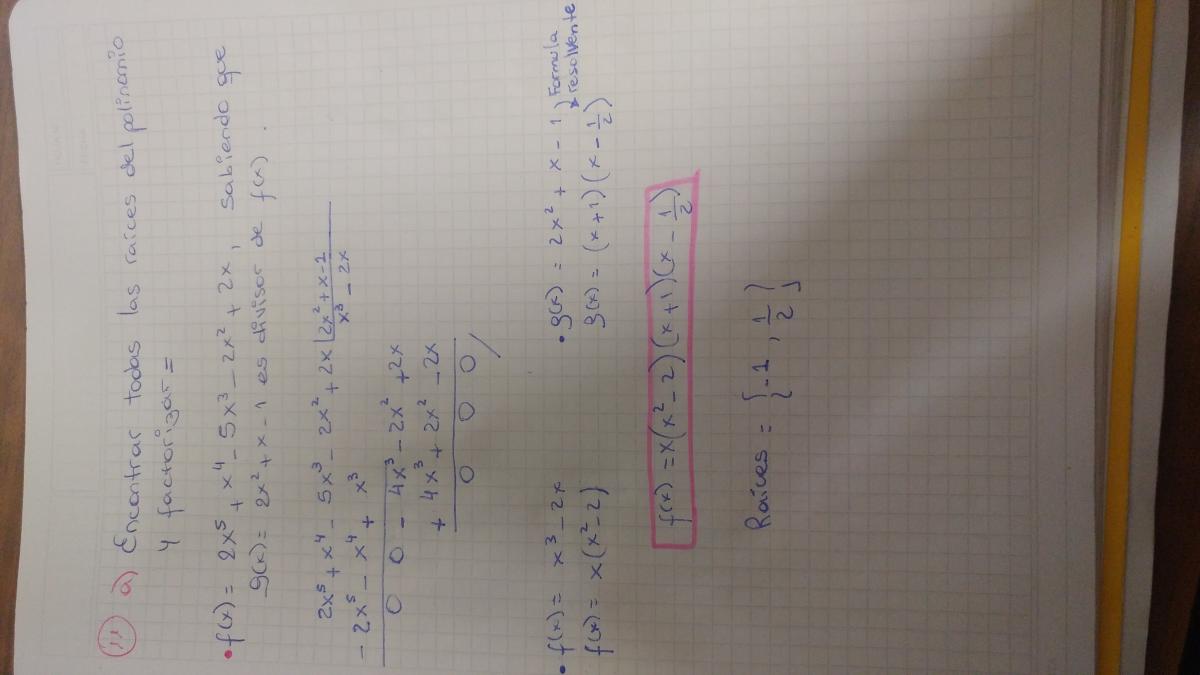 11 a) Encontrar todas las raíces del polinomio
y factorizar =
• f(x) = 2x⁵ + x⁴ - 5x³ - 2x² + 2x, sabiendo que
g(x) = 2x² + x - 1 es divisor de f(x).
2x⁵ + x⁴ - 5x³ - 2x² + 2x | 2x² + x - 1
- 2x⁵ - x⁴ + x³ x³ - 2x
0 0 - 4x³ - 2x² + 2x
+ 4x³ + 2x² - 2x
0 0 0 /
• f(x) = x³ - 2x
f(x) = x(x² - 2)
• g(x) = 2x² + x - 1 ) Formula resolvente
g(x) = (x+1)(x - 1/2)
f(x) = x(x² - 2)(x+1)(x - 1/2)
Raíces = {-1, 1/2}